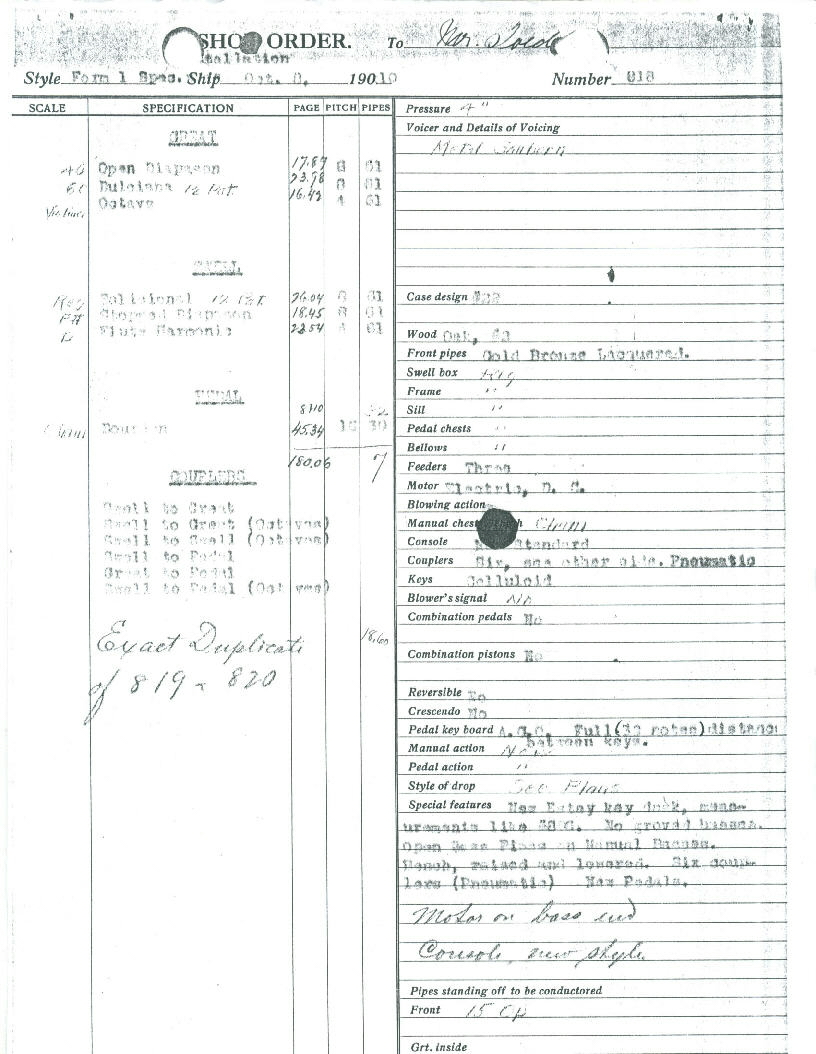 SHOP ORDER. To Mr.
Style Form 1 Spec. Ship Oct. 8, 19010 Number 818
SCALE SPECIFICATION PAGE PITCH PIPES
GREAT
40 Open Diapason 17.87 8 61
60 Dulciana 12 Pot. 23.98 8 61
Octave 16.42 4 61
SWELL
Reg Salicional 26.04 8 61
Stopped Diapason 18.45 8 61
Flute Harmonic 22.54 4 61
PEDAL
8.10 32
Bourdon 45.34 16 30
180.06 7
COUPLERS
Swell to Great
Swell to Great (Octaves)
Swell to Swell (Octaves)
Swell to Pedal
Great to Pedal
Swell to Pedal (Octaves)
18.60
Exact Duplicate
of 819 - 820
Pressure 4"
Voicer and Details of Voicing
Metal Sanborn
Case design #22
Wood Oak, #2
Front pipes Gold Bronze Lacquered.
Swell box Reg
Frame "
Sill "
Pedal chests "
Bellows "
Feeders Three
Motor Electric, D. C.
Blowing action
Manual chest
Console Standard
Couplers Six, one other side. Pneumatic
Keys Celluloid
Blower's signal No
Combination pedals No
Combination pistons No
Reversible No
Crescendo No
Pedal key board A.G.O. Full (32 notes) distance
between keys.
Manual action New
Pedal action "
Style of drop See Plans
Special features New Estey key desk, meas-
urements like No groved basses.
Open Bass Pipes in Manual Basses.
Bench, raised and lowered. Six coup-
lers (Pneumatic) New Pedals.
Motor on bass end
Console, new style
Pipes standing off to be conductored
Front 15 Op
Grt. inside